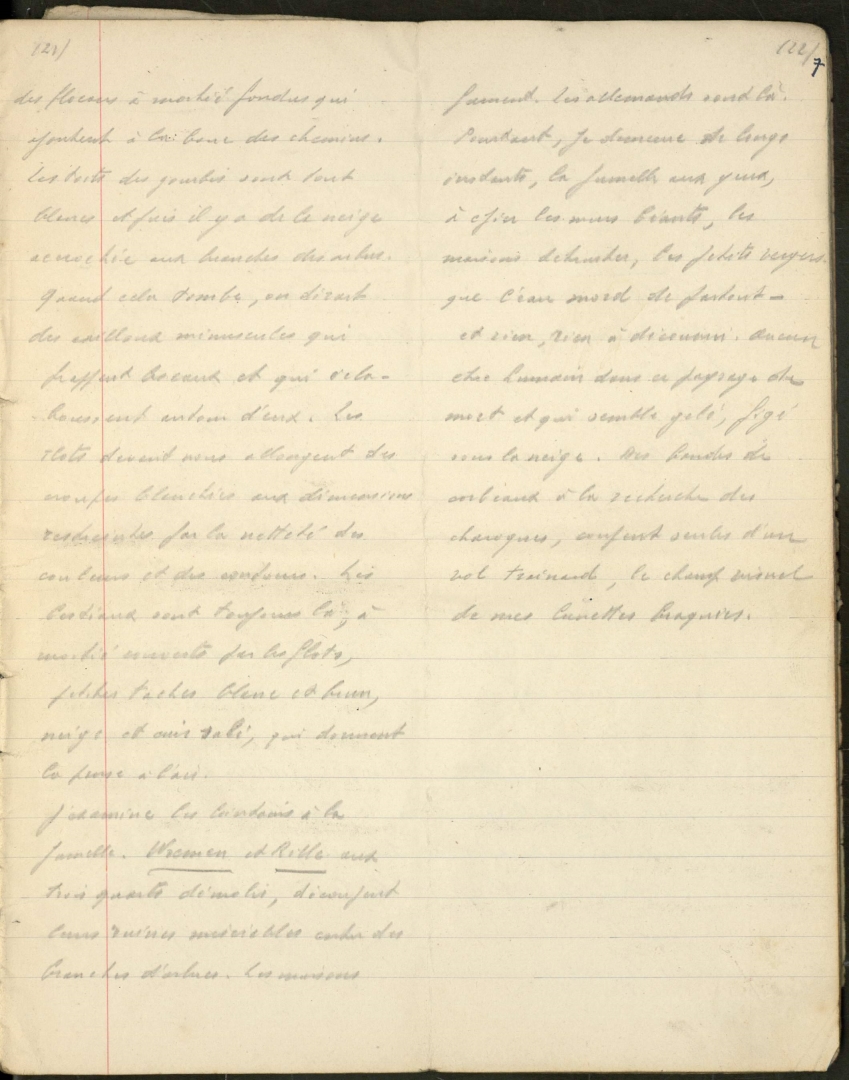 121/
des flocons à moitié fondus qui
ajoutent à la boue des chemins.
Les toits des gourbis sont tout
blancs et puis il y a de la neige
accrochée aux branches des arbres.
Quand cela tombe, on dirait
des cailloux minuscules qui
frappent les eaux et qui écla-
boussent autour d'eux. Les
flots devant nous allongent des
croupes blanchies aux dimensions
restreintes par la netteté des
couleurs et des contours. Les
bestiaux sont toujours là, à
moitié couverts par les flots,
petites taches blanc et brun,
neige et cuir sali, qui dorment
la panse à l'air.
J'examine les lointains à la
jumelle. Wremen et Rille aux
trois quarts démolis, découpent
leurs ruines misérables entre des
branches d'arbres. Les maisons
122/
7
fument. Les allemands sont là.
Pourtant, je demeure de longs
instants, la jumelle aux yeux,
à épier les murs béants, les
maisons détruites, les petits vergers
que l'eau mord de partout -
et rien, rien à découvrir. Aucun
être humain dans ce paysage de
mort et qui semble gelé, figé
sous la neige. Des bandes de
corbeaux à la recherche des
charognes, coupent seules d'un
vol traînard, le champ visuel
de mes lunettes braquées.